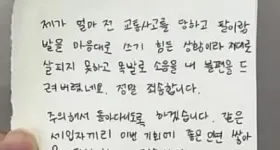 제가 얼마 전 교통사고를 당하고 팔이랑
발을 마음대로 쓰기 힘든 상황이라 제대로
살피지 못하고 목발로 소음을 내 불편을 드
려버렸네요. 정말 죄송합니다.
주의해서 돌아다니도록 하겠습니다. 같은
세입자끼리 이번 기회에 좋은 연 쌓아